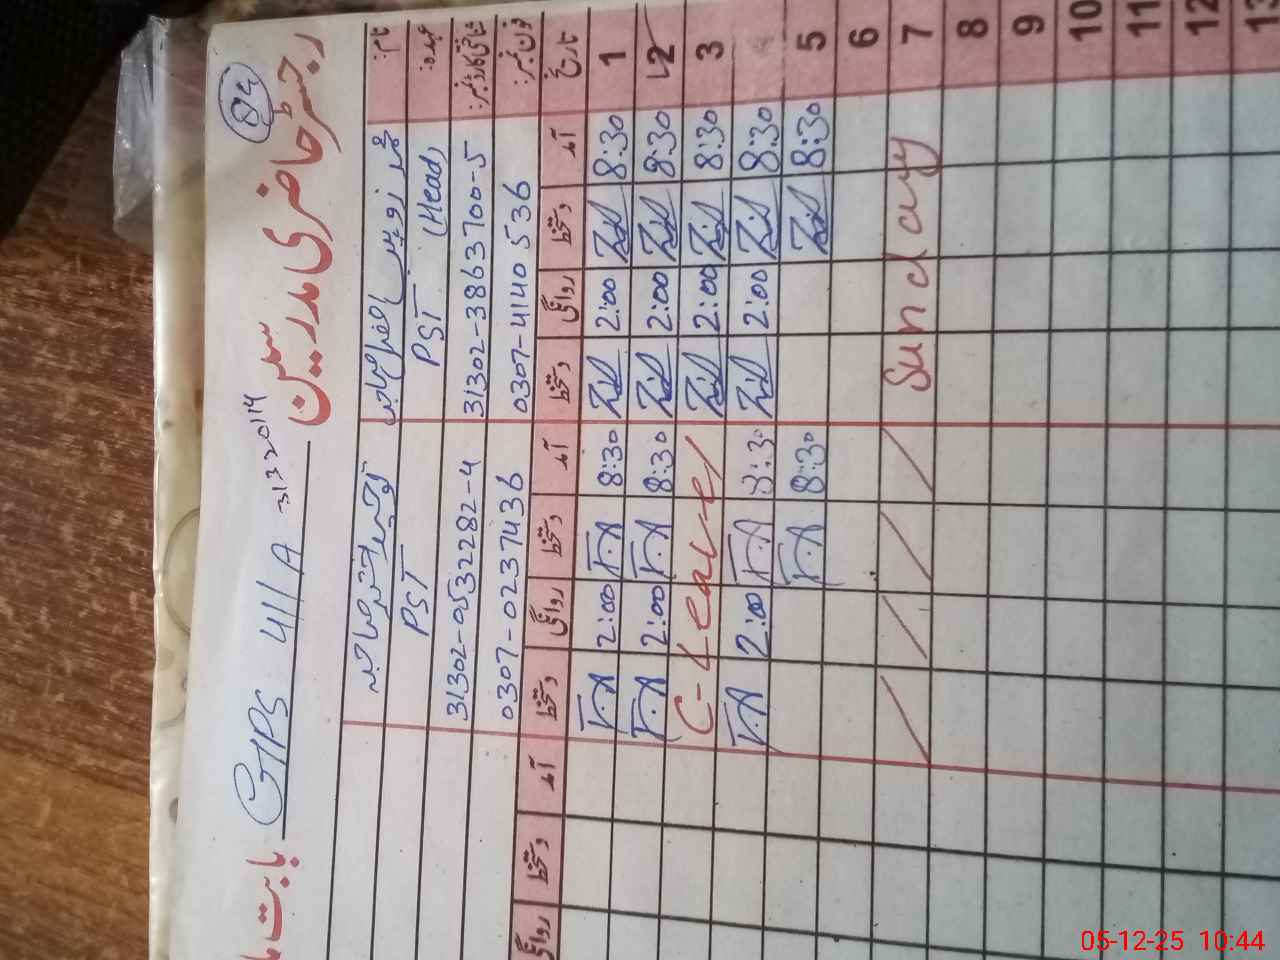 84
رجسٹر حاضری مدرسین GPS 41/A 31332014 بابت ما
نام:
عہدہ: PST (Head) PST
شناختی کارڈ نمبر: 31302-3863700-5 31302-0532282-4
فون نمبر: 0307-4140536 0307-0237436
تاریخ آمد دستخط روانگی دستخط آمد دستخط روانگی دستخط آمد دستخط روانگی
1 8:30 2:00 8:30 F.A 2:00 F.A
2 8:30 2:00 8:30 F.A 2:00 F.A
3 8:30 2:00 C-Leave
8:30 2:00 8:30 F.A 2:00 F.A
5 8:30 8:30 F.A
6
7 Sunday
8
9
10
11
12
13
05-12-25 10:44